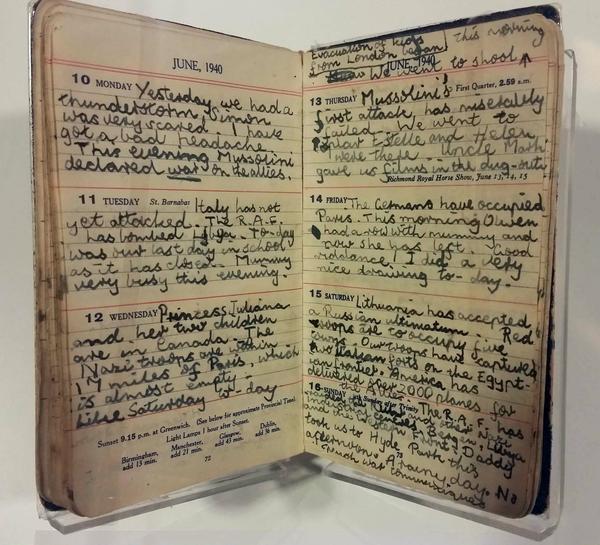 JUNE, 1940
10 MONDAY Yesterday we had a
thunderstorm, Simon
was very scared. I have
got a bad headache.
This evening Mussolini
declared war on the allies.
11 TUESDAY St. Barnabas Italy has not
yet attacked. The R.A.F.
has bombed Libya. To-day
was our last day in school
as it has closed. Mummy
very busy this evening.
12 WEDNESDAY Princess Juliana
and her two children
are in Canada. The
Nazi troops are within
17 miles of Paris, which
is almost empty.
like Saturday to-day
Sunset 9.15 p.m. at Greenwich. (See below for approximate Provincial Time)
Light Lamps 1 hour after Sunset.
Birmingham, add 13 min.
Manchester, add 21 min.
Glasgow, add 43 min.
Dublin, add 36 min.
72
Evacuation of kids
from London began
This morning
We went to shool
JUNE, 1940
13 THURSDAY Mussolini's First Quarter, 2.59 a.m.
first attack, has miserably
failed. We went to
play Estelle and Helen
were there. Uncle Mark
gave us films in the dug-out.
Richmond Royal Horse Show, June 13, 14, 15
14 FRIDAY The Germans have occupied
Paris. This morning Olwen
had a row with mummy and
now she has left. Good
riddance! I did a very
nice drawing to-day.
15 SATURDAY Lithuania has accepted
a Russian ultimatum. Red
troops are to occupy five
towns. Our troops have captured
two Italian forts on the Egypt-
ian frontier. America has
delivered over 2000 planes for
the allies.
16 SUNDAY Trinity The R.A.F. has
industry centres, Bergen, Libya
and the Western Front. Daddy
took us to Hyde Park this
afternoon. A rainy day. No
73